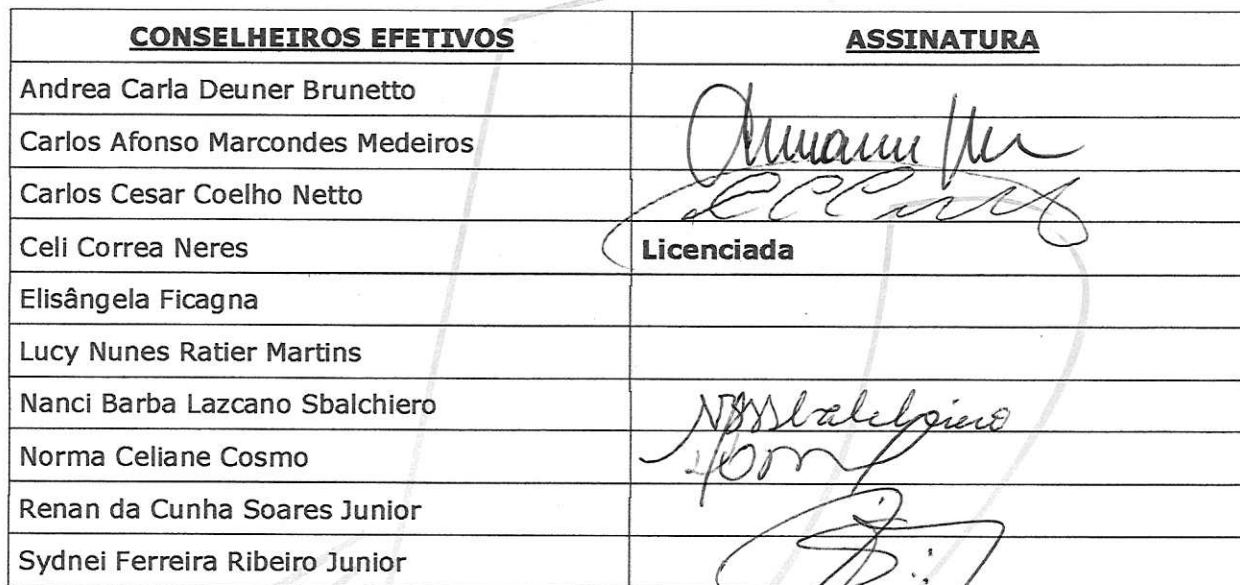 CONSELHEIROS EFETIVOS ASSINATURA
Andrea Carla Deuner Brunetto
Carlos Afonso Marcondes Medeiros
Carlos Cesar Coelho Netto
Celi Correa Neres Licenciada
Elisângela Ficagna
Lucy Nunes Ratier Martins
Nanci Barba Lazcano Sbalchiero
Norma Celiane Cosmo
Renan da Cunha Soares Junior
Sydnei Ferreira Ribeiro Junior